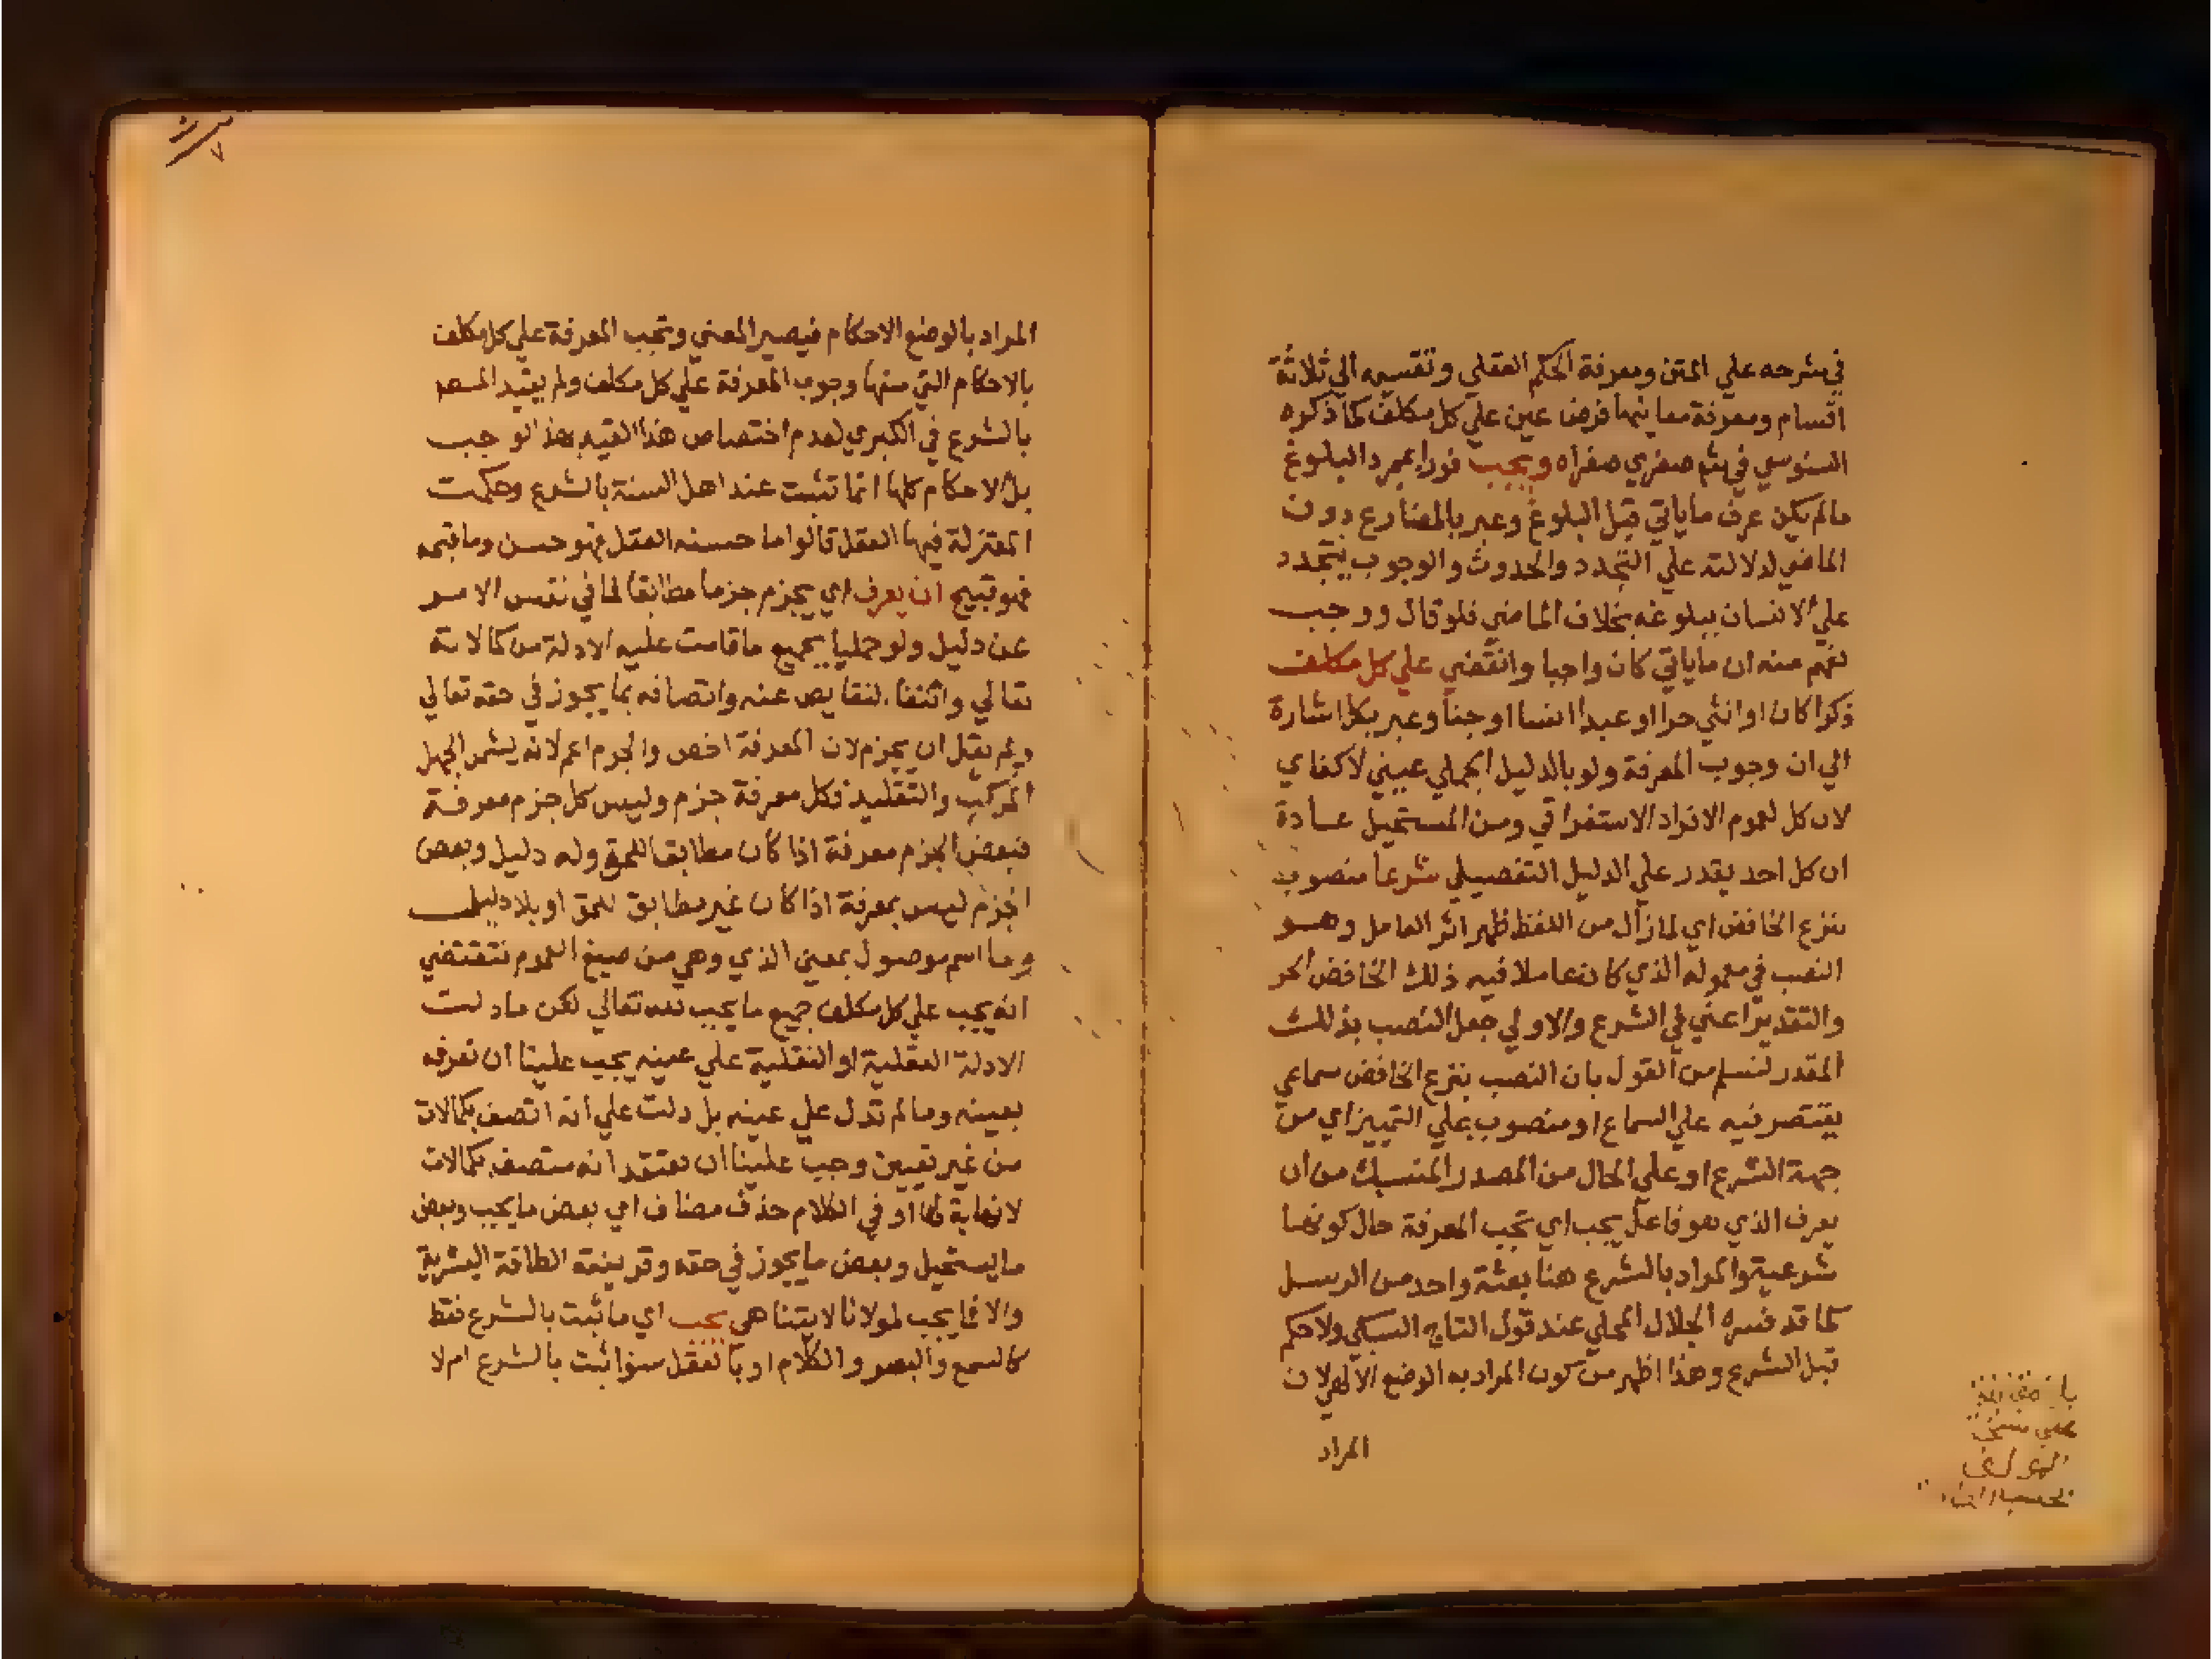 في شرحه علي المتن ومعرفة الحكم العقلي وتقسيمه الي ثلاثة
اقسام ومعرفة معانيها فرض عين علي كل مكلف كما ذكره
السنوسي في شم صغري صغراه ويجب فورا بمجرد البلوغ
مالم يكن عرف ماياتي قبل البلوغ وعبر بالمضارع دون
الماضي لدلالته علي التجدد والحدوث والوجوب يتجدد
علي الانسان ببلوغه بخلاف الماضي فلو قال ووجب
لفهم منه ان ماياتي كان واجبا وانقضي علي كل مكلف
ذكرا كان او انثي حرا او عبدا انسا او جنا وعبر بكل اشارة
الي ان وجوب المعرفة ولو بالدليل الجملي عيني لا كفاي
لان كل لعموم الافراد الاستغراقي ومن المستحيل عادة
ان كل احد يقدر علي الدليل التفصيلي شرعا منصوب
بنزع الخافض اي لمازال من اللفظ ظهر اثر العامل وهو
النصب في معموله الذي كان عاملا فيه ذلك الخافض الجر
والتقدير اعني في الشرع والاولي جعل النصب بذلك
المقدر لنسلم من القول بان النصب بنزع الخافض سماعي
يقتصر فيه علي السماع او منصوب علي التمييز اي من
جهة الشرع او علي الحال من المصدر المنسبك من ان
يعرف الذي هو فاعل يجب اي تجب المعرفة حال كونها
شرعية والمراد بالشرع هنا بعثة واحد من الرسل
كما قد فسره الجلال المحلي عند قول التاج السبكي ولا حكم
قبل الشرع وهذا اظهر من كون المراد به الوضع الالهي لان
المراد
المراد بالوضع الاحكام فيصير المعني وتجب المعرفة علي كل مكلف
بالاحكام التي منها وجوب المعرفة علي كل مكلف ولم يقيد المصم
بالشرع في الكبري لعدم اختصاص هذا القيد بهذا الوجب
بل الاحكام كلها انما تثبت عند اهل السنة بالشرع وحكمت
المعتزلة فيها العقل قالوا ما حسنه العقل فهو حسن وماقبحه
فهو قبيح ان يعرف اي يجزم جزما مطابقا لما في نفس الامر
عن دليل ولو جمليا بجميع ماقامت عليه الادلة من كمالاته
تعالي وانتفا النقايص عنه واتصافه بما يجوز في حقه تعالي
ولم يقل ان يجزم لان المعرفة اخص والجزم اعم لانه يشمل الجهل
المركب والتقليد فكل معرفة جزم وليس كل جزم معرفة
فبعض الجزم معرفة اذا كان مطابقا للحق وله دليل وبعض
الجزم ليس بمعرفة اذا كان غير مطابق للحق او بلا دليل
وما اسم موصول بمعني الذي وهي من صيغ العموم فتقتضي
انه يجب علي كل مكلف جميع مايجب لله تعالي لكن مادلت
الادلة العقلية او النقلية علي عينه يجب علينا ان نعرفه
بعينه ومالم تدل علي عينه بل دلت علي انه اتصف بكمالات
من غير تعيين وجب علينا ان نعتقد انه متصف بكمالات
لا نهاية لها او في الكلام حذف مضاف اي بعض مايجب وبعض
مايستحيل وبعض مايجوز في حقه وقرينة الطاقة البشرية
والا فمايجب لمولانا لا يتناهي يجب اي ماثبت بالشرع فقط
كالسمع والبصر والكلام او بالعقل سوا ثبت بالشرع ام لا